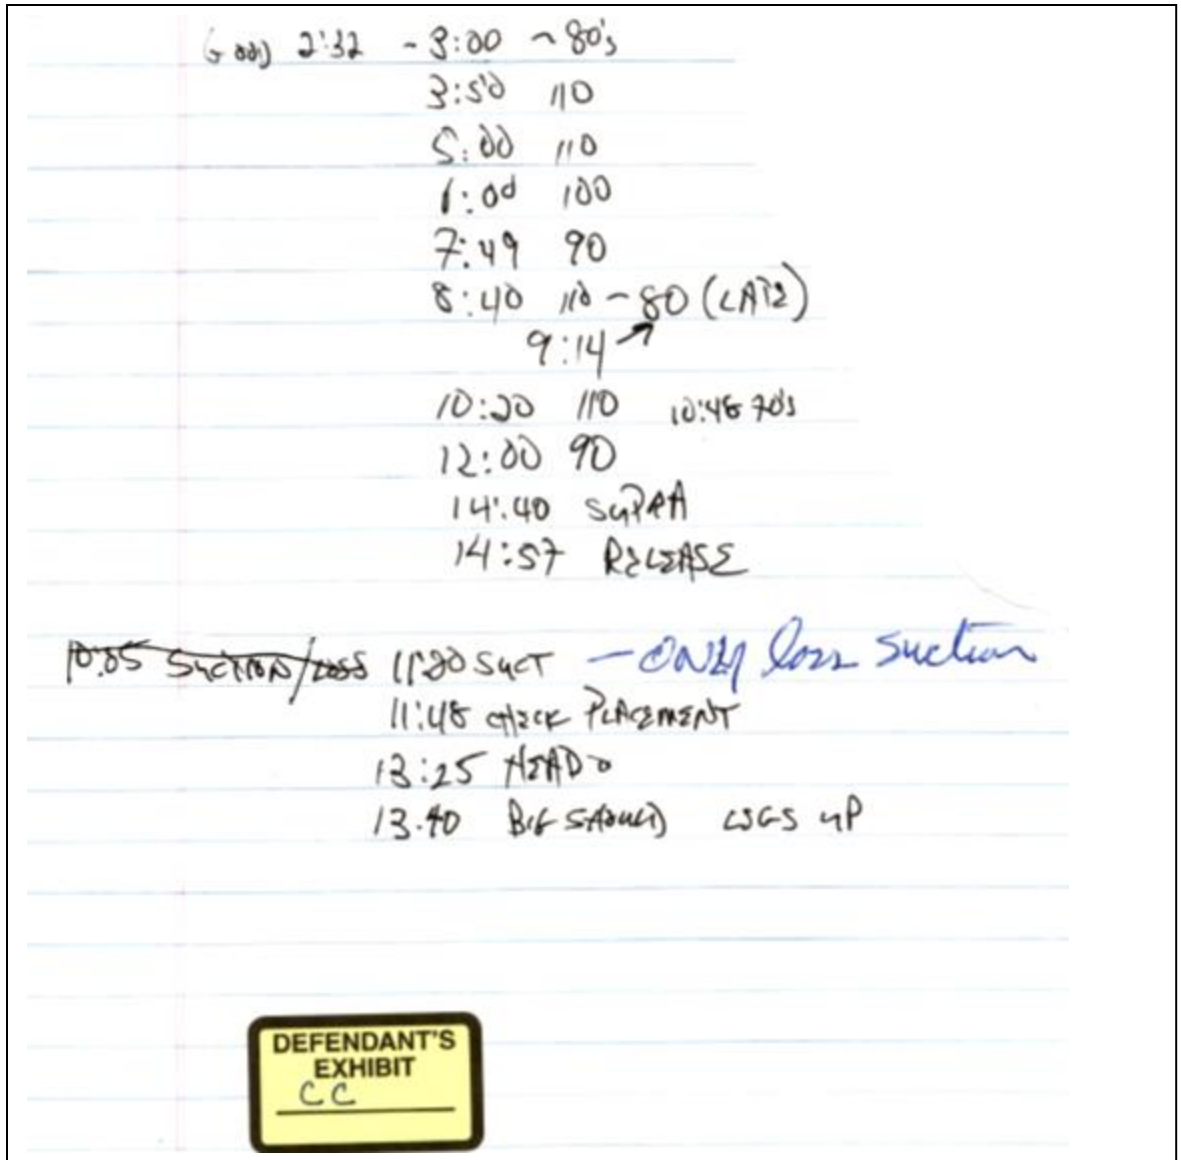 Good 2:32 - 3:00 ~ 80's
3:50 110
5:00 110
1:00 100
7:49 90
8:40 110 - 80 (LATE)
9:14
10:20 110 10:48 70's
12:00 90
14:40 SUPRA
14:57 RELEASE
10:05 SUCTION/LOSS 11:20 SUCT - ONLY loss suction
11:48 CHECK PLACEMENT
13:25 HEAD
13:40 BIG LEGS UP
DEFENDANT'S
EXHIBIT
CC